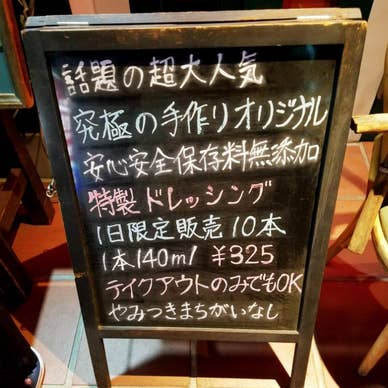 話題の超大人気
究極の手作りオリジナル
安心安全保存料無添加
特製ドレッシング
1日限定販売10本
1本140ml ¥325
テイクアウトのみでもOK
やみつきまちがいなし